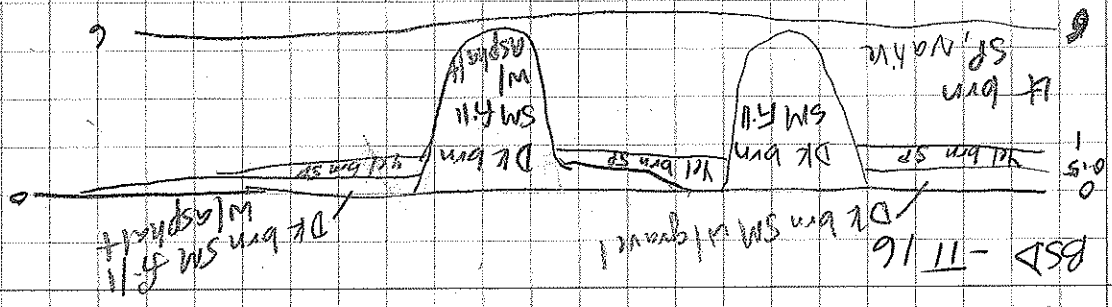 BSD -
Dk brn SM w/gravel
Dk brn SM fill
w/asphalt
0
0.15
1
Yel brn SP
Dk brn
SM fill
Yel brn SP
Dk brn
SM fill
w/
asphalt
Yel brn SP
0
Lt brn
SP, native
6
6